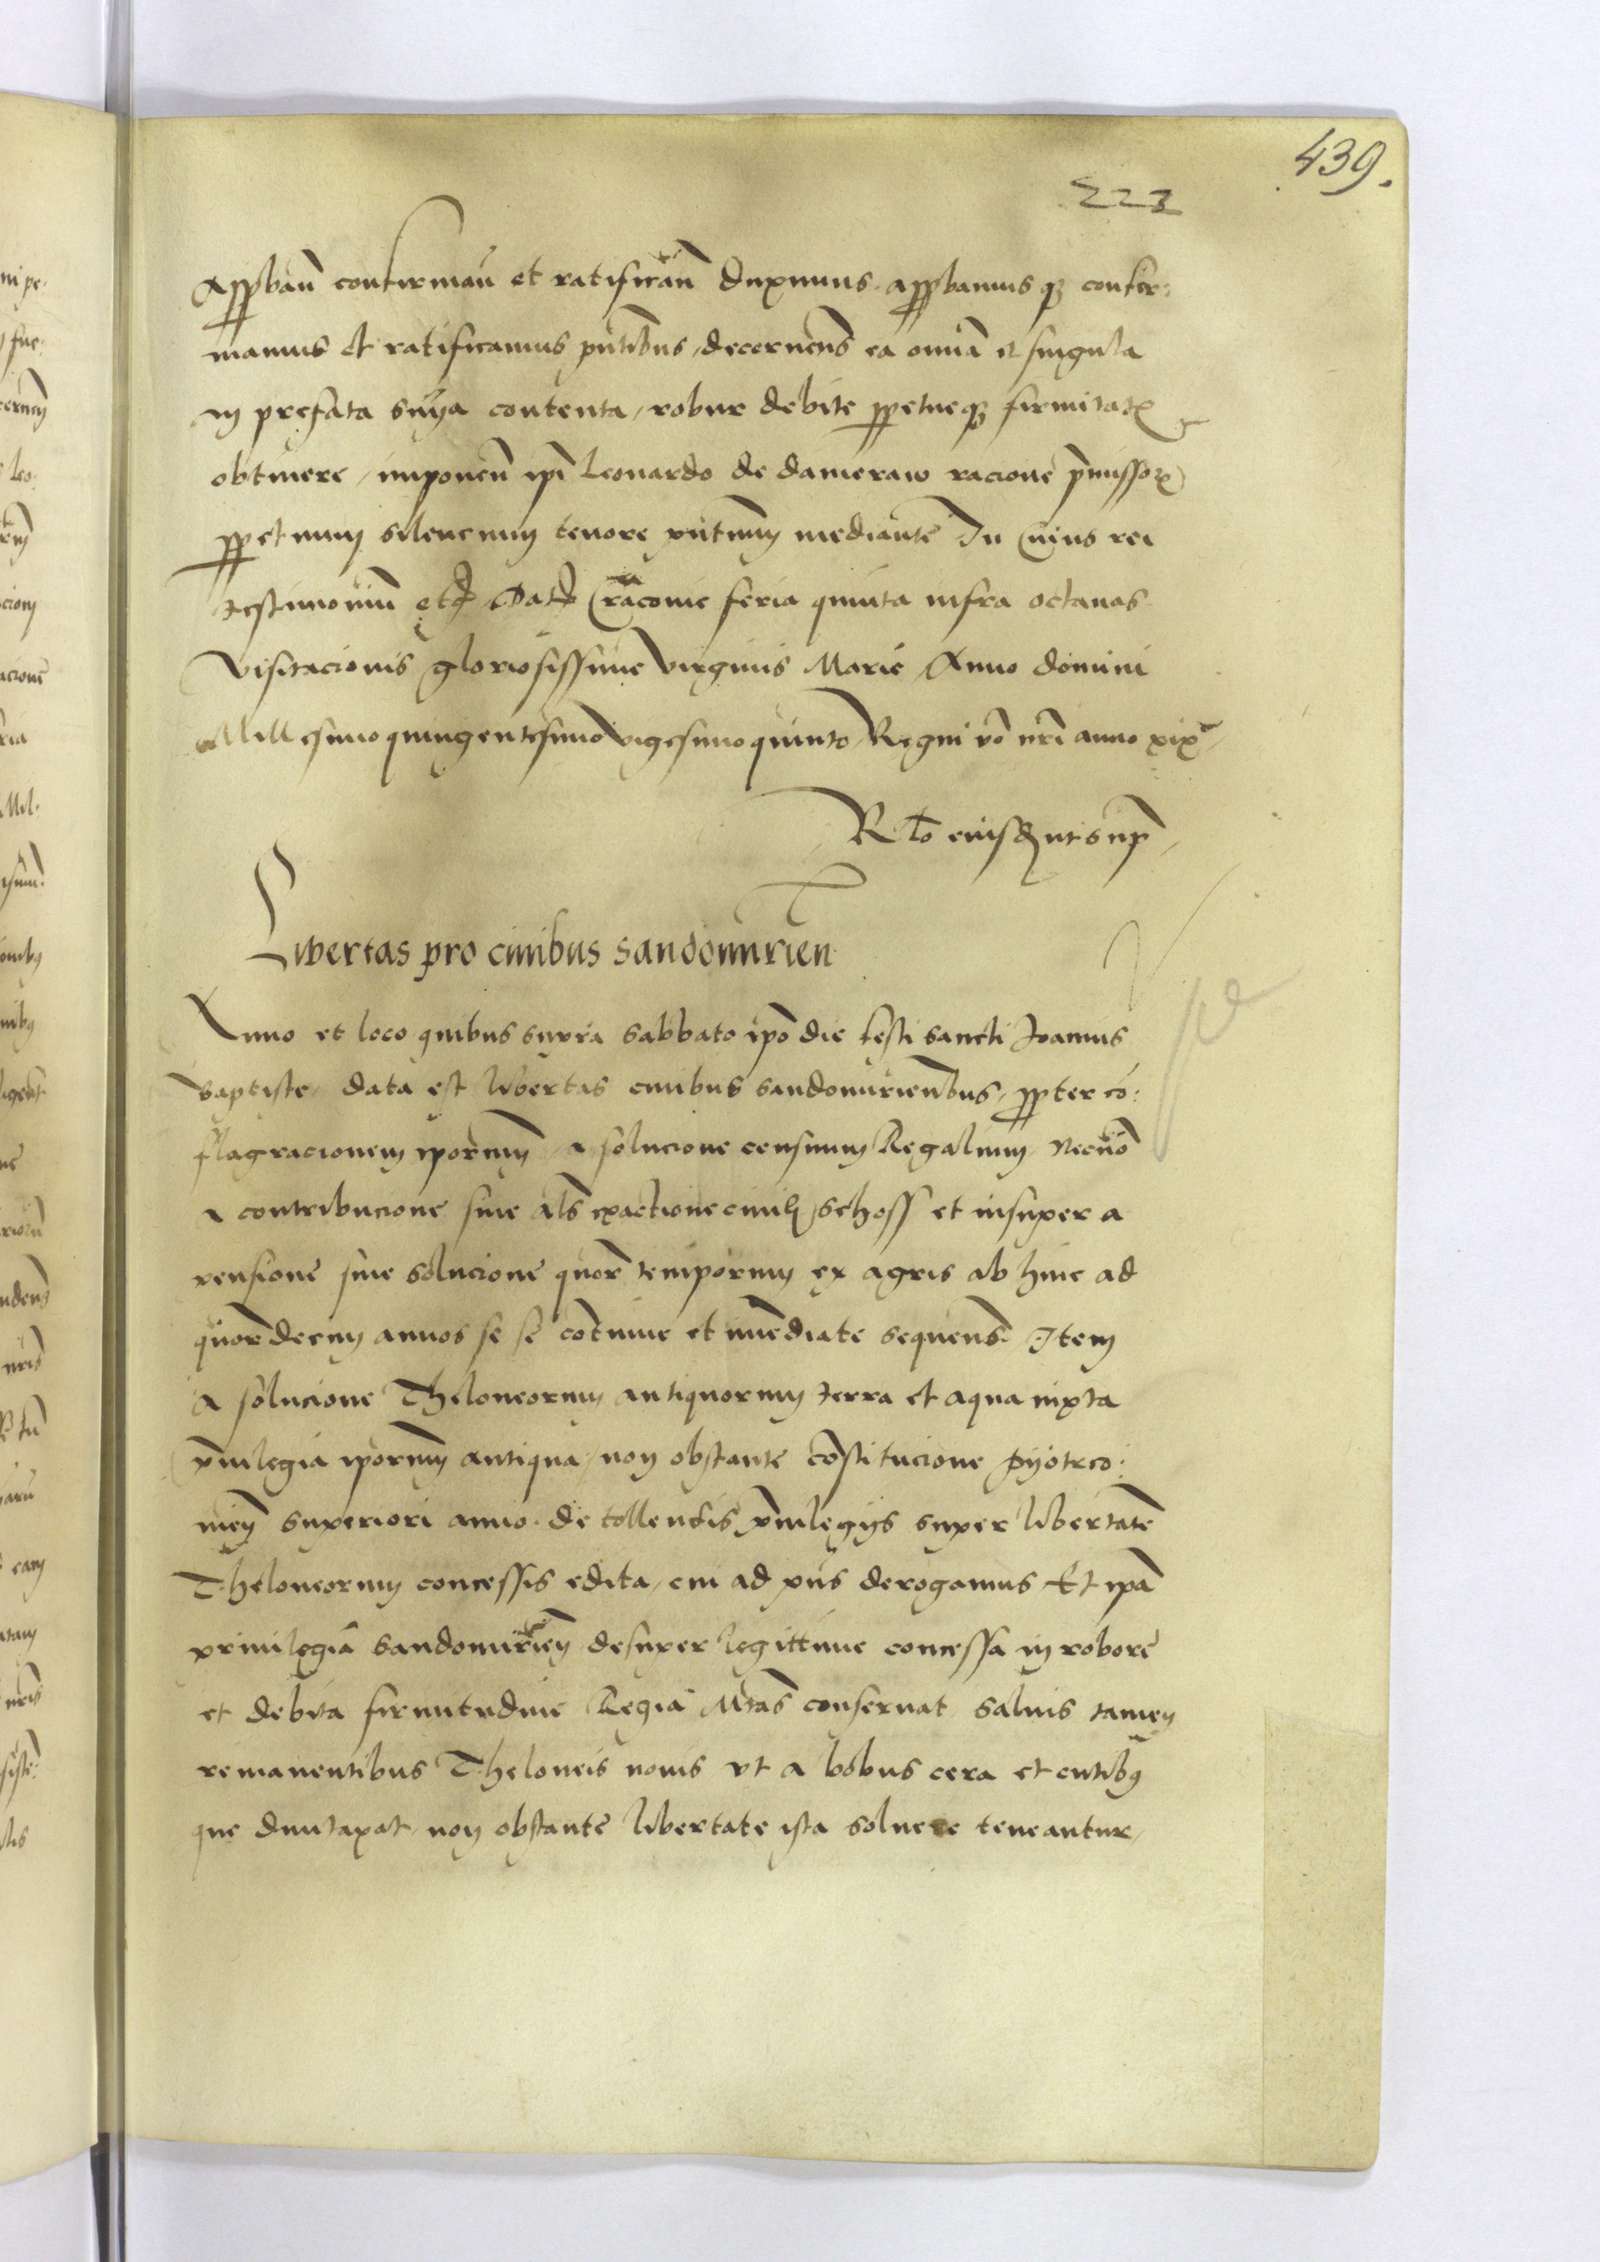 439.
223
Approbañ confirmañ et ratificañ duximus. approbamusq; confir:
mamus et ratificamus pñtibus, decerneñs ea omnia et singula
in prefata sñia contenta, robur debite perpetueq; firmitatis
obtinere, imponeñ ipi Leonardo de dameraw racione p̃missorum
perpetuum silencium tenore pñtium mediante In Cuius rei
testimonium etc̃ Dat̃ Cracovie feria quinta infra octauas
Visitacionis gloriosissime virginis Marie Anno domini
Millesimo quingentesimo vigesimo quinto Regni vo nri anno xix
Rto eiusdem ut sup̃
Libertas pro ciuibus sandomirien
Anno et loco quibus supra sabbato ipo die festi sancti Joannis
baptiste, data est libertas ciuibus sandomirieñbus, propter co:
flagracionem iporum, a solucione censuum Regalium necno
a contribucione siue als exactione ciuili schoss et insuper a
pensione siue solucione quor temporum ex agris ab hinc ad
quordecim annos se se cotinue et imediate sequens. Item
A solucione Theloneorum antiquorum terra et aqua iuxta
priuilegia iporum antiqua, non obstante costitucione pyotrco:
nien superiori anno de tollendis priuilegijs super libertate
Theloneorum concessis edita, cui ad pñs derogamus Et ipa
priuilegia sandomirien desuper legittime concessa in robore
et debita firmitudine Regia Mtas conseruat saluis tamen
remanentibus Theloneis nouis vt a bobus cera et cutibus
que duntaxat non obstante libertate ista soluere teneantur,